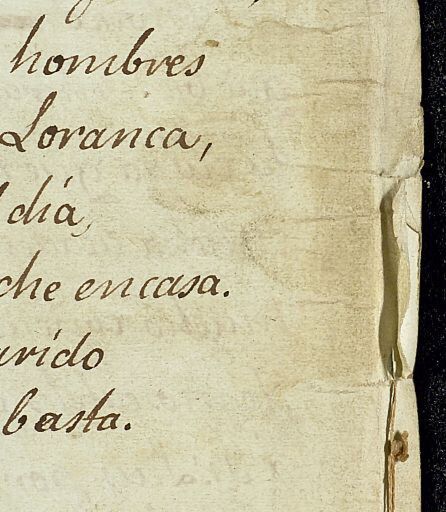 hombres
Loranca,
día,
che encasa.
arido
basta.